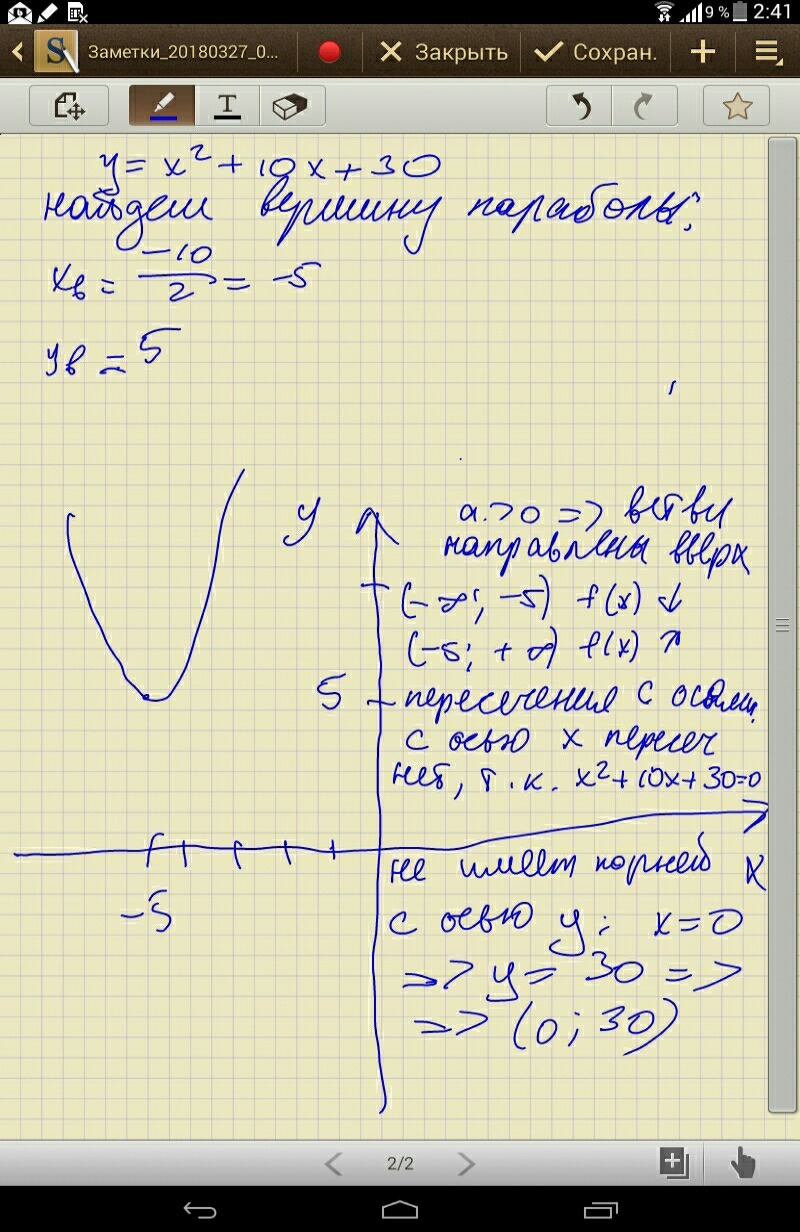 9% 2:41
Заметки_20180327_0... Закрыть Сохран.
T
y = x² + 10x + 30
найдем вершину параболы:
xв = -10/2 = -5
yв = 5
y
a > 0 => ветви
направлены вверх
(-∞; -5) f(x) ↓
(-5; +∞) f(x) ↑
5 пересечения с осями:
с осью x пересеч
нет, т.к. x²+10x+30=0
не имеет корней x
-5
с осью y: x=0
=> y = 30 =>
=> (0; 30)
2/2